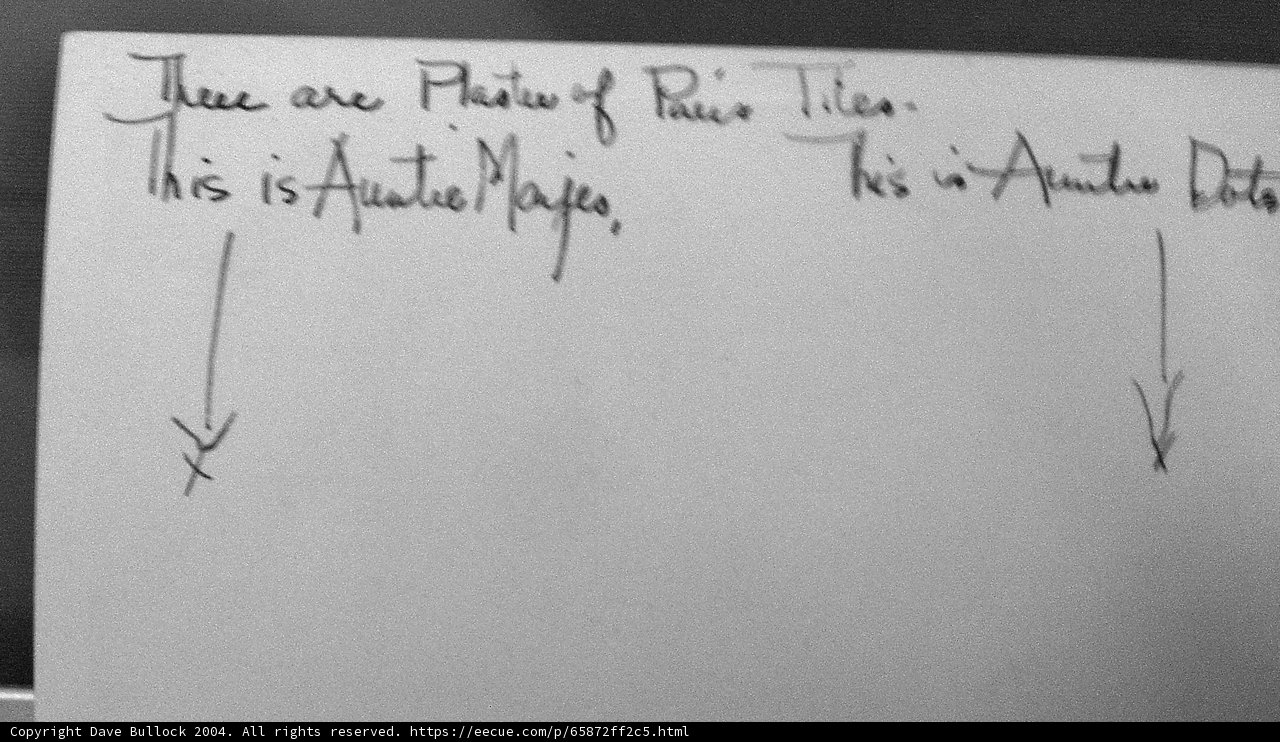 These are Plaster of Paris Tiles.
This is Auntie Marjes. This is Auntie Dots
Copyright Dave Bullock 2004. All rights reserved. https://eecue.com/p/65872ff2c5.html